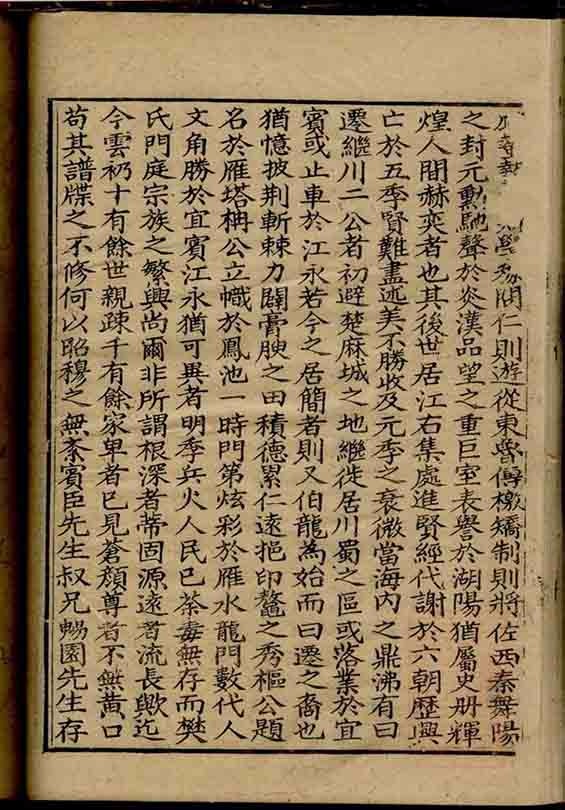 聞仁則遊從東魯傳檄矯制則將佐西秦舞陽
之封元勳馳聲於炎漢品望之重巨室表譽於湖陽猶屬史册輝
煌人間赫奕者也其後世居江右集處進賢經代謝於六朝歷興
亡於五季賢難盡述美不勝收及元季之衰微當海内之鼎沸有曰
遷繼川二公者初避楚麻城之地繼徙居川蜀之區或落業於宜
賓或止車於江永若今之居簡者則又伯龍為始而曰遷之裔也
猶憶披荆斬棘力闢膏腴之田積德累仁遠挹印鰲之秀樞公題
名於雁塔柟公立幟於鳳池一時門第炫彩於雁水龍門數代人
文角勝於宜賓江永猶可異者明季兵火人民已荼毒無存而樊
氏門庭宗族之繁興尚爾非所謂根深者蒂固源遠者流長歟迄
今雲礽十有餘世親疎千有餘家卑者已見蒼顏尊者不無黄口
苟其譜牒之不修何以昭穆之無紊賓臣先生叔兄暘園先生存